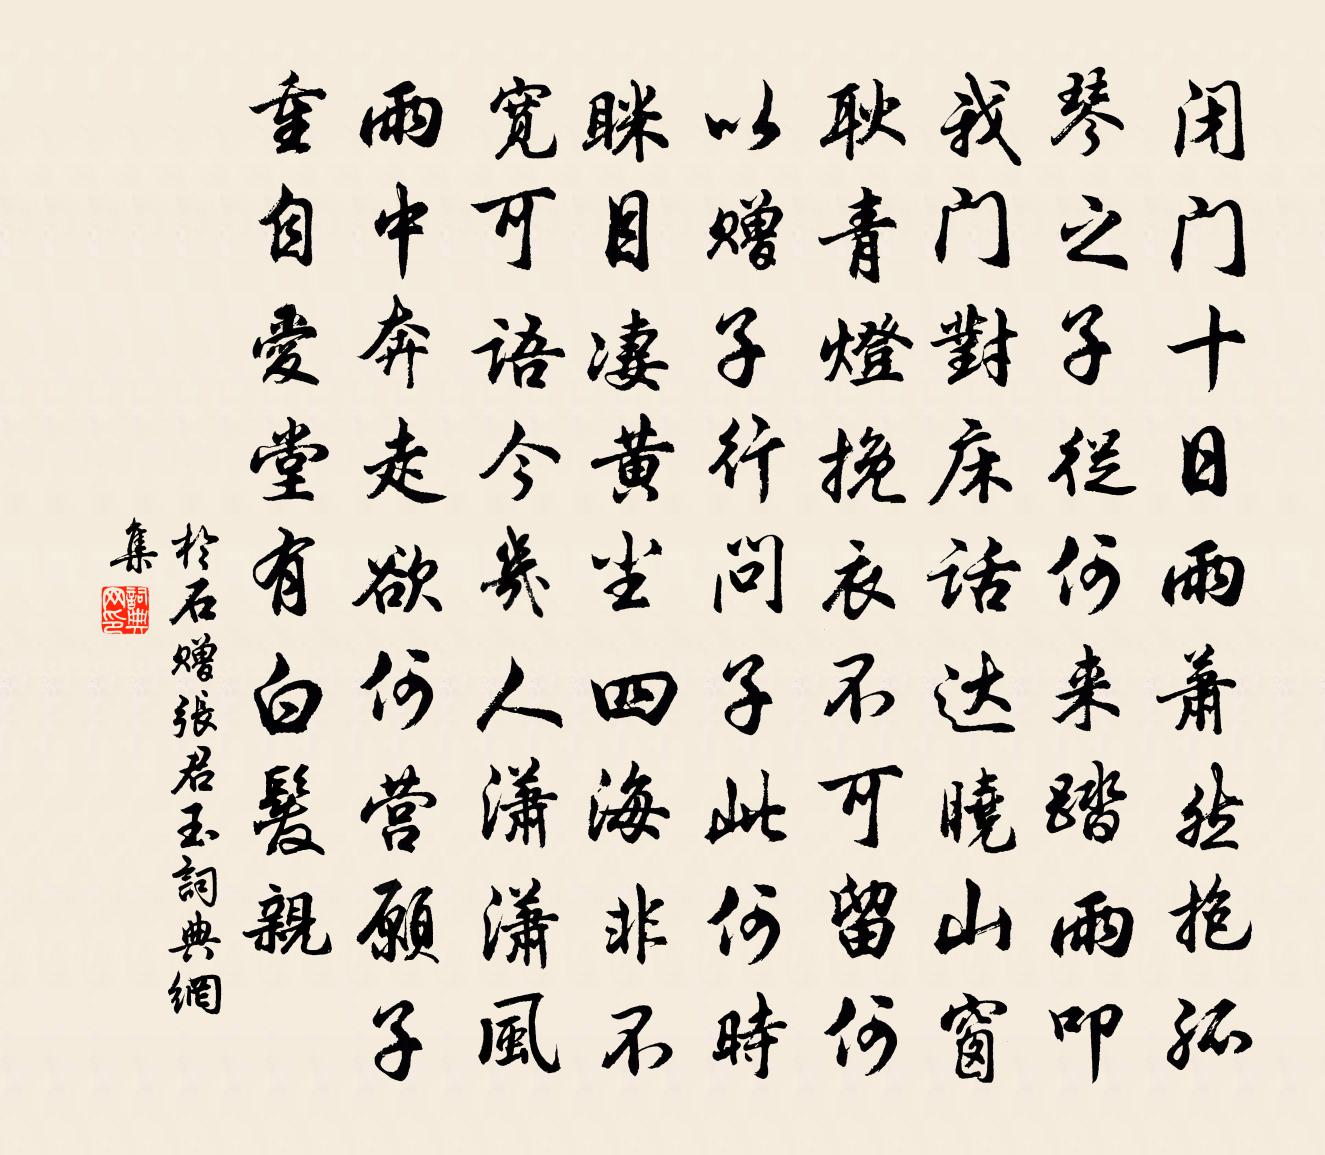 闭门十日雨萧然抱孤
琴之子從何来踏雨叩
我门對床话达曉山窗
耿青燈挽衣不可留何
以赠子行问子此何時
眯目凄黄尘四海非不
寛可语今幾人潇潇風
雨中奔走欲何营願子
重自愛堂有白髮親
於石赠張君玉詞典網
集
詞典网印